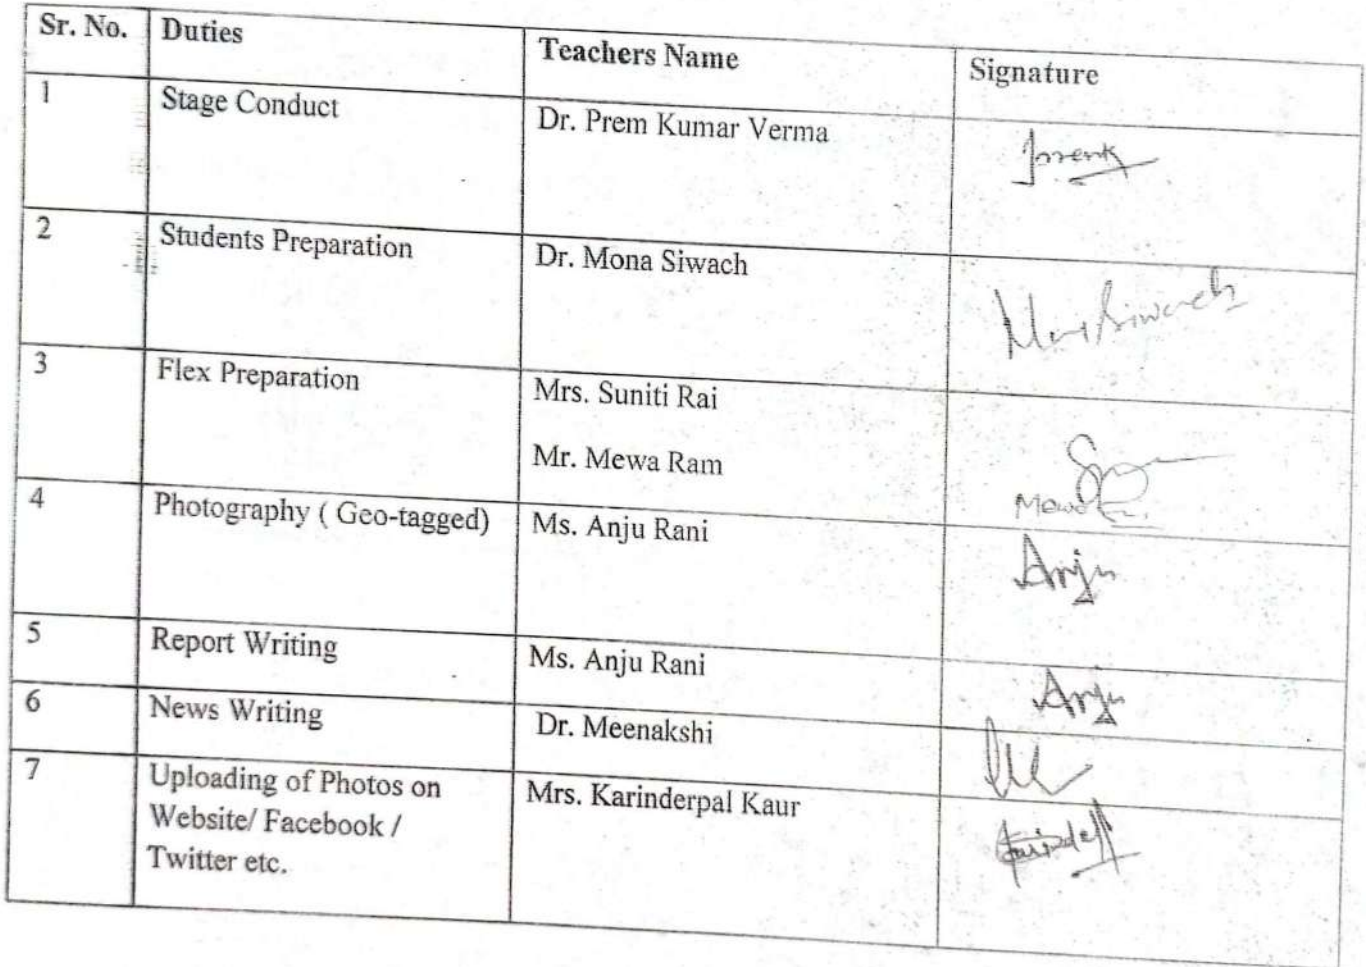 Sr. No. Duties Teachers Name Signature
1 Stage Conduct Dr. Prem Kumar Verma
2 Students Preparation Dr. Mona Siwach
3 Flex Preparation Mrs. Suniti Rai
Mr. Mewa Ram
4 Photography ( Geo-tagged) Ms. Anju Rani Anju
5 Report Writing Ms. Anju Rani Anju
6 News Writing Dr. Meenakshi
7 Uploading of Photos on Mrs. Karinderpal Kaur
Website/ Facebook /
Twitter etc.